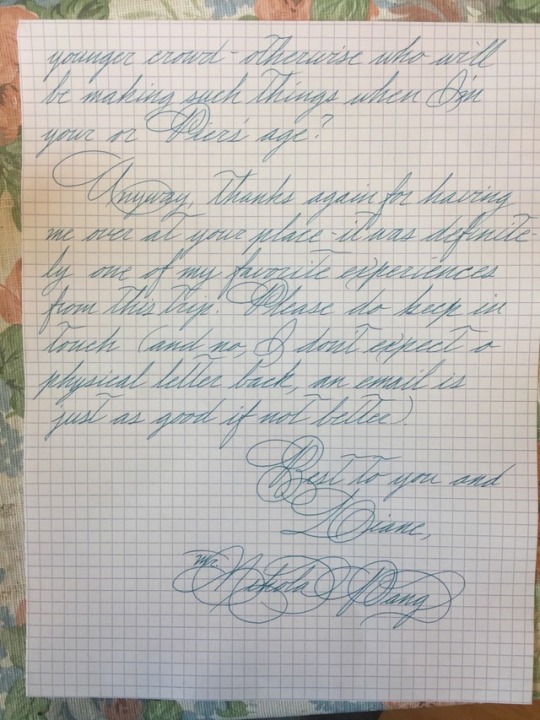 younger crowd - otherwise who will
be making such things when I'm
your or Pier's age?
Anyway, thanks again for having
me over at your place - it was definite-
ly one of my favorite experiences
from this trip. Please do keep in
touch (and no, I don't expect a
physical letter back, an email is
just as good if not better).
Best to you and
Diane,
Mr. Nikola Pang